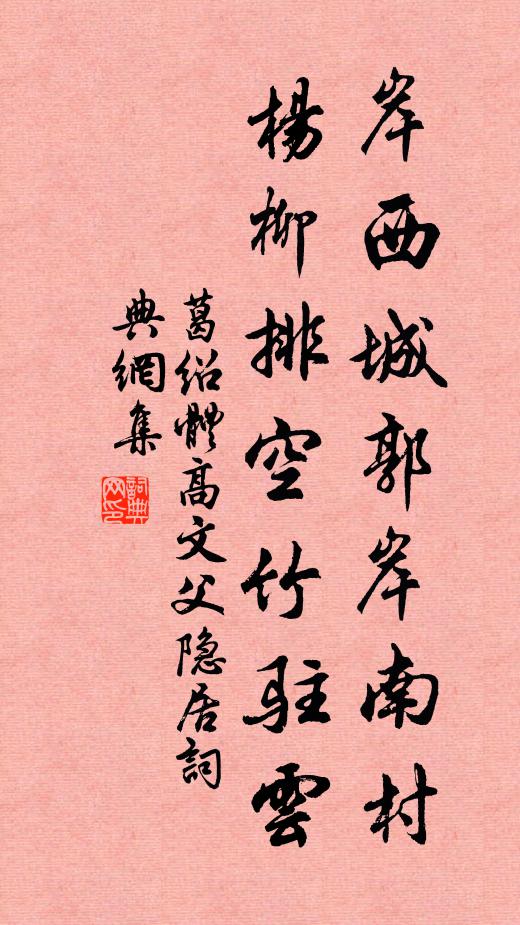 岸西城郭岸南村
楊柳排空竹駐雲
葛绍體高文父隐居詞
典網集
詞典
网印